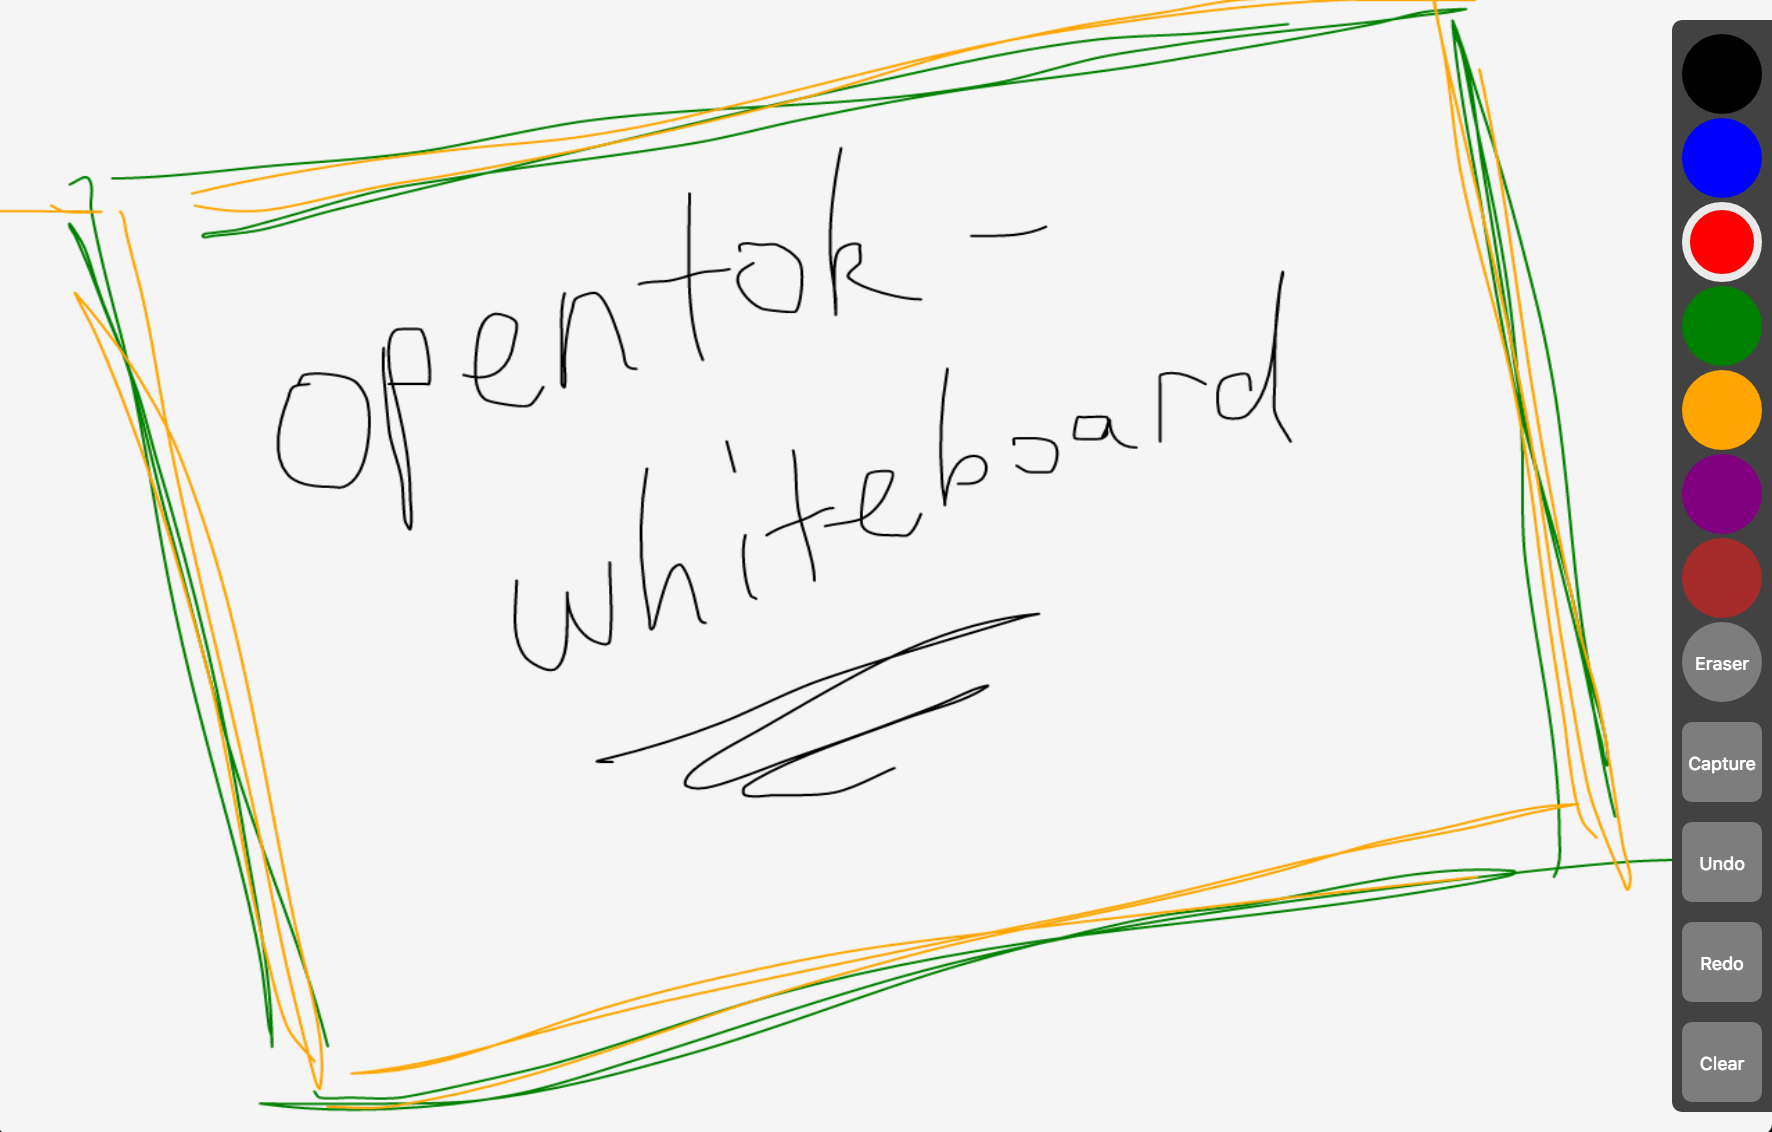 opentok -
whiteboard
Eraser
Capture
Undo
Redo
Clear